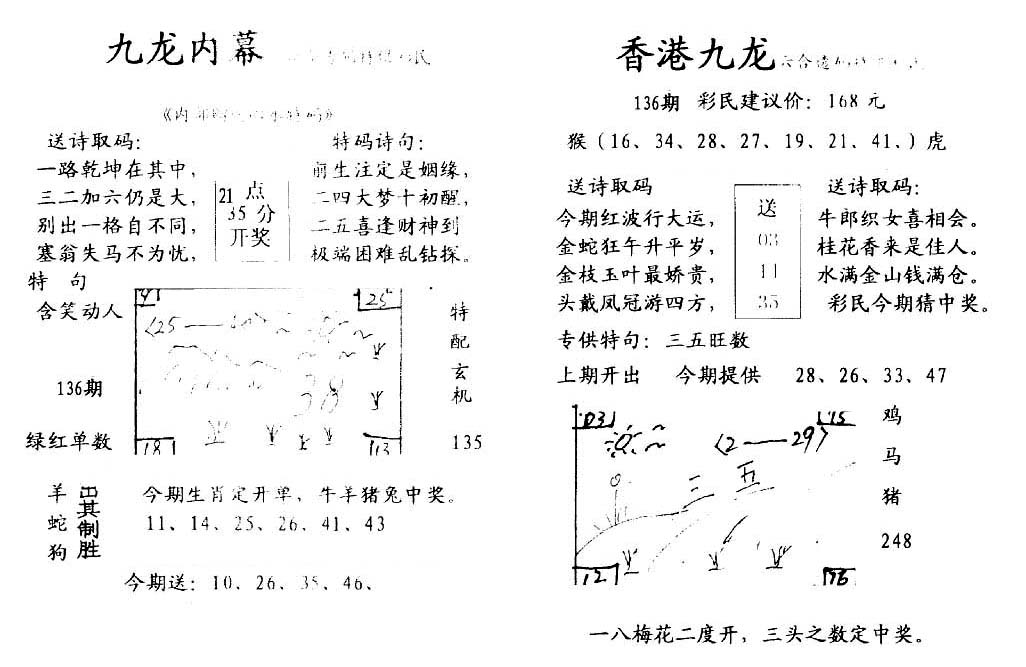 九龙内幕
送诗取码：
一路乾坤在其中，
三二加六仍是大，
别出一格自不同，
塞翁失马不为忧，
21 点
35 分
开奖
特码诗句：
前生注定是姻缘，
二四大梦十初醒，
二五喜逢财神到
极端困难乱钻探。
特 句
含笑动人
136期
绿红单数
41
25
〈25
38
181
113
特
配
玄
机
135
羊
蛇
狗
出其制胜
今期生肖定开单，牛羊猪兔中奖。
11、14、25、26、41、43
今期送：10、26、35、46、
香港九龙
136期 彩民建议价：168 元
猴（16、34、28、27、19、21、41、）虎
送诗取码
今期红波行大运，
金蛇狂午升平岁，
金枝玉叶最娇贵，
头戴凤冠游四方，
送
03
11
35
送诗取码：
牛郎织女喜相会。
桂花香来是佳人。
水满金山钱满仓。
彩民今期猜中奖。
专供特句：三五旺数
上期开出 今期提供 28、26、33、47
03
15
〈2——29〉
三 五
12
16
鸡
马
猪
248
一八梅花二度开，三头之数定中奖。